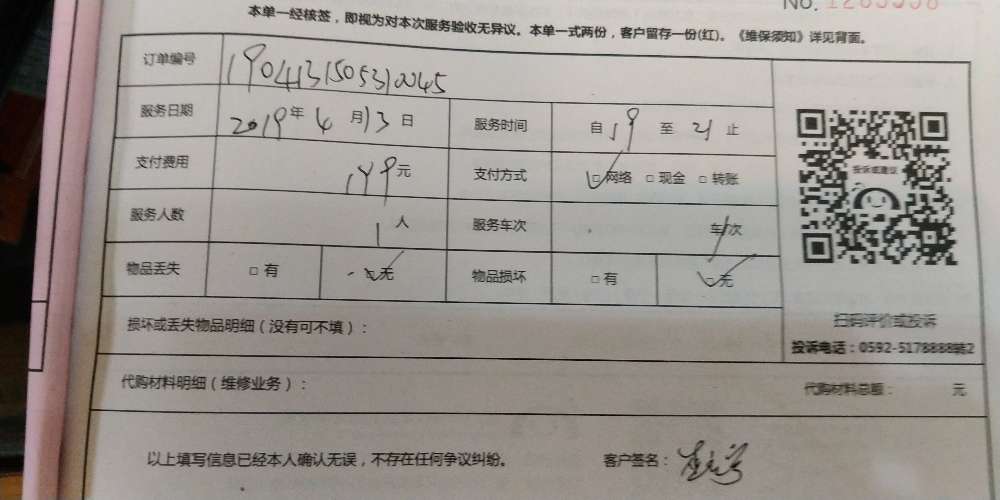 No. 1283338
本单一经核签，即视为对本次服务验收无异议。本单一式两份，客户留存一份(红)。《维保须知》详见背面。
订单编号 190413150531045
服务日期 2019年 4 月 13 日 服务时间 自 19 至 21 止
支付费用 149 元 支付方式 □网络 □现金 □转账
服务人数 1 人 服务车次 车次
物品丢失 □有 □无 物品损坏 □有 □无
投诉或建议
扫码评价或投诉
损坏或丢失物品明细（没有可不填）：
投诉电话：0592-5178888转2
代购材料明细（维修业务）： 代购材料总额： 元
以上填写信息已经本人确认无误，不存在任何争议纠纷。 客户签名：